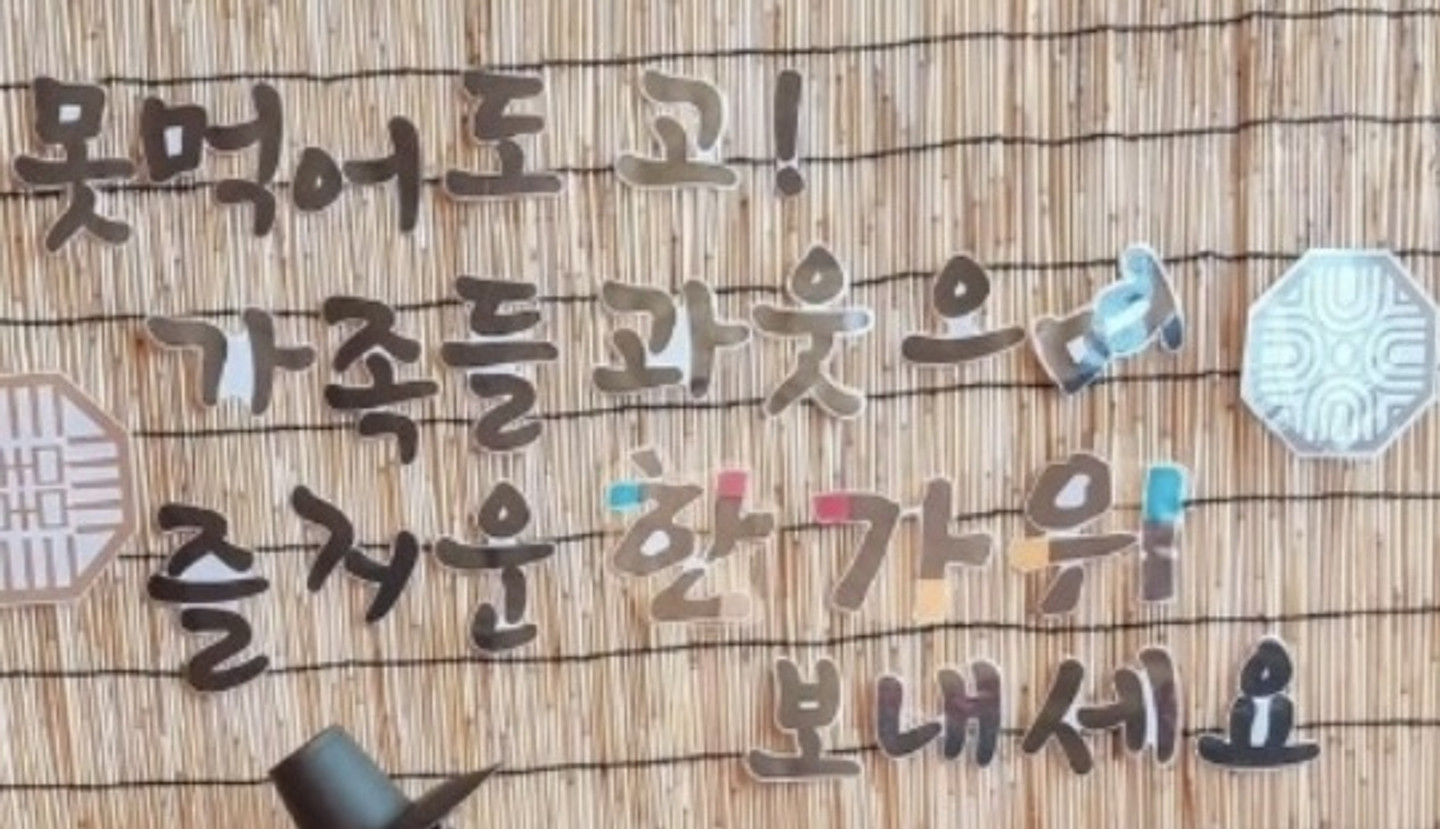 못먹어도 고!
가족들과 웃으며
즐거운 한가위
보내세요